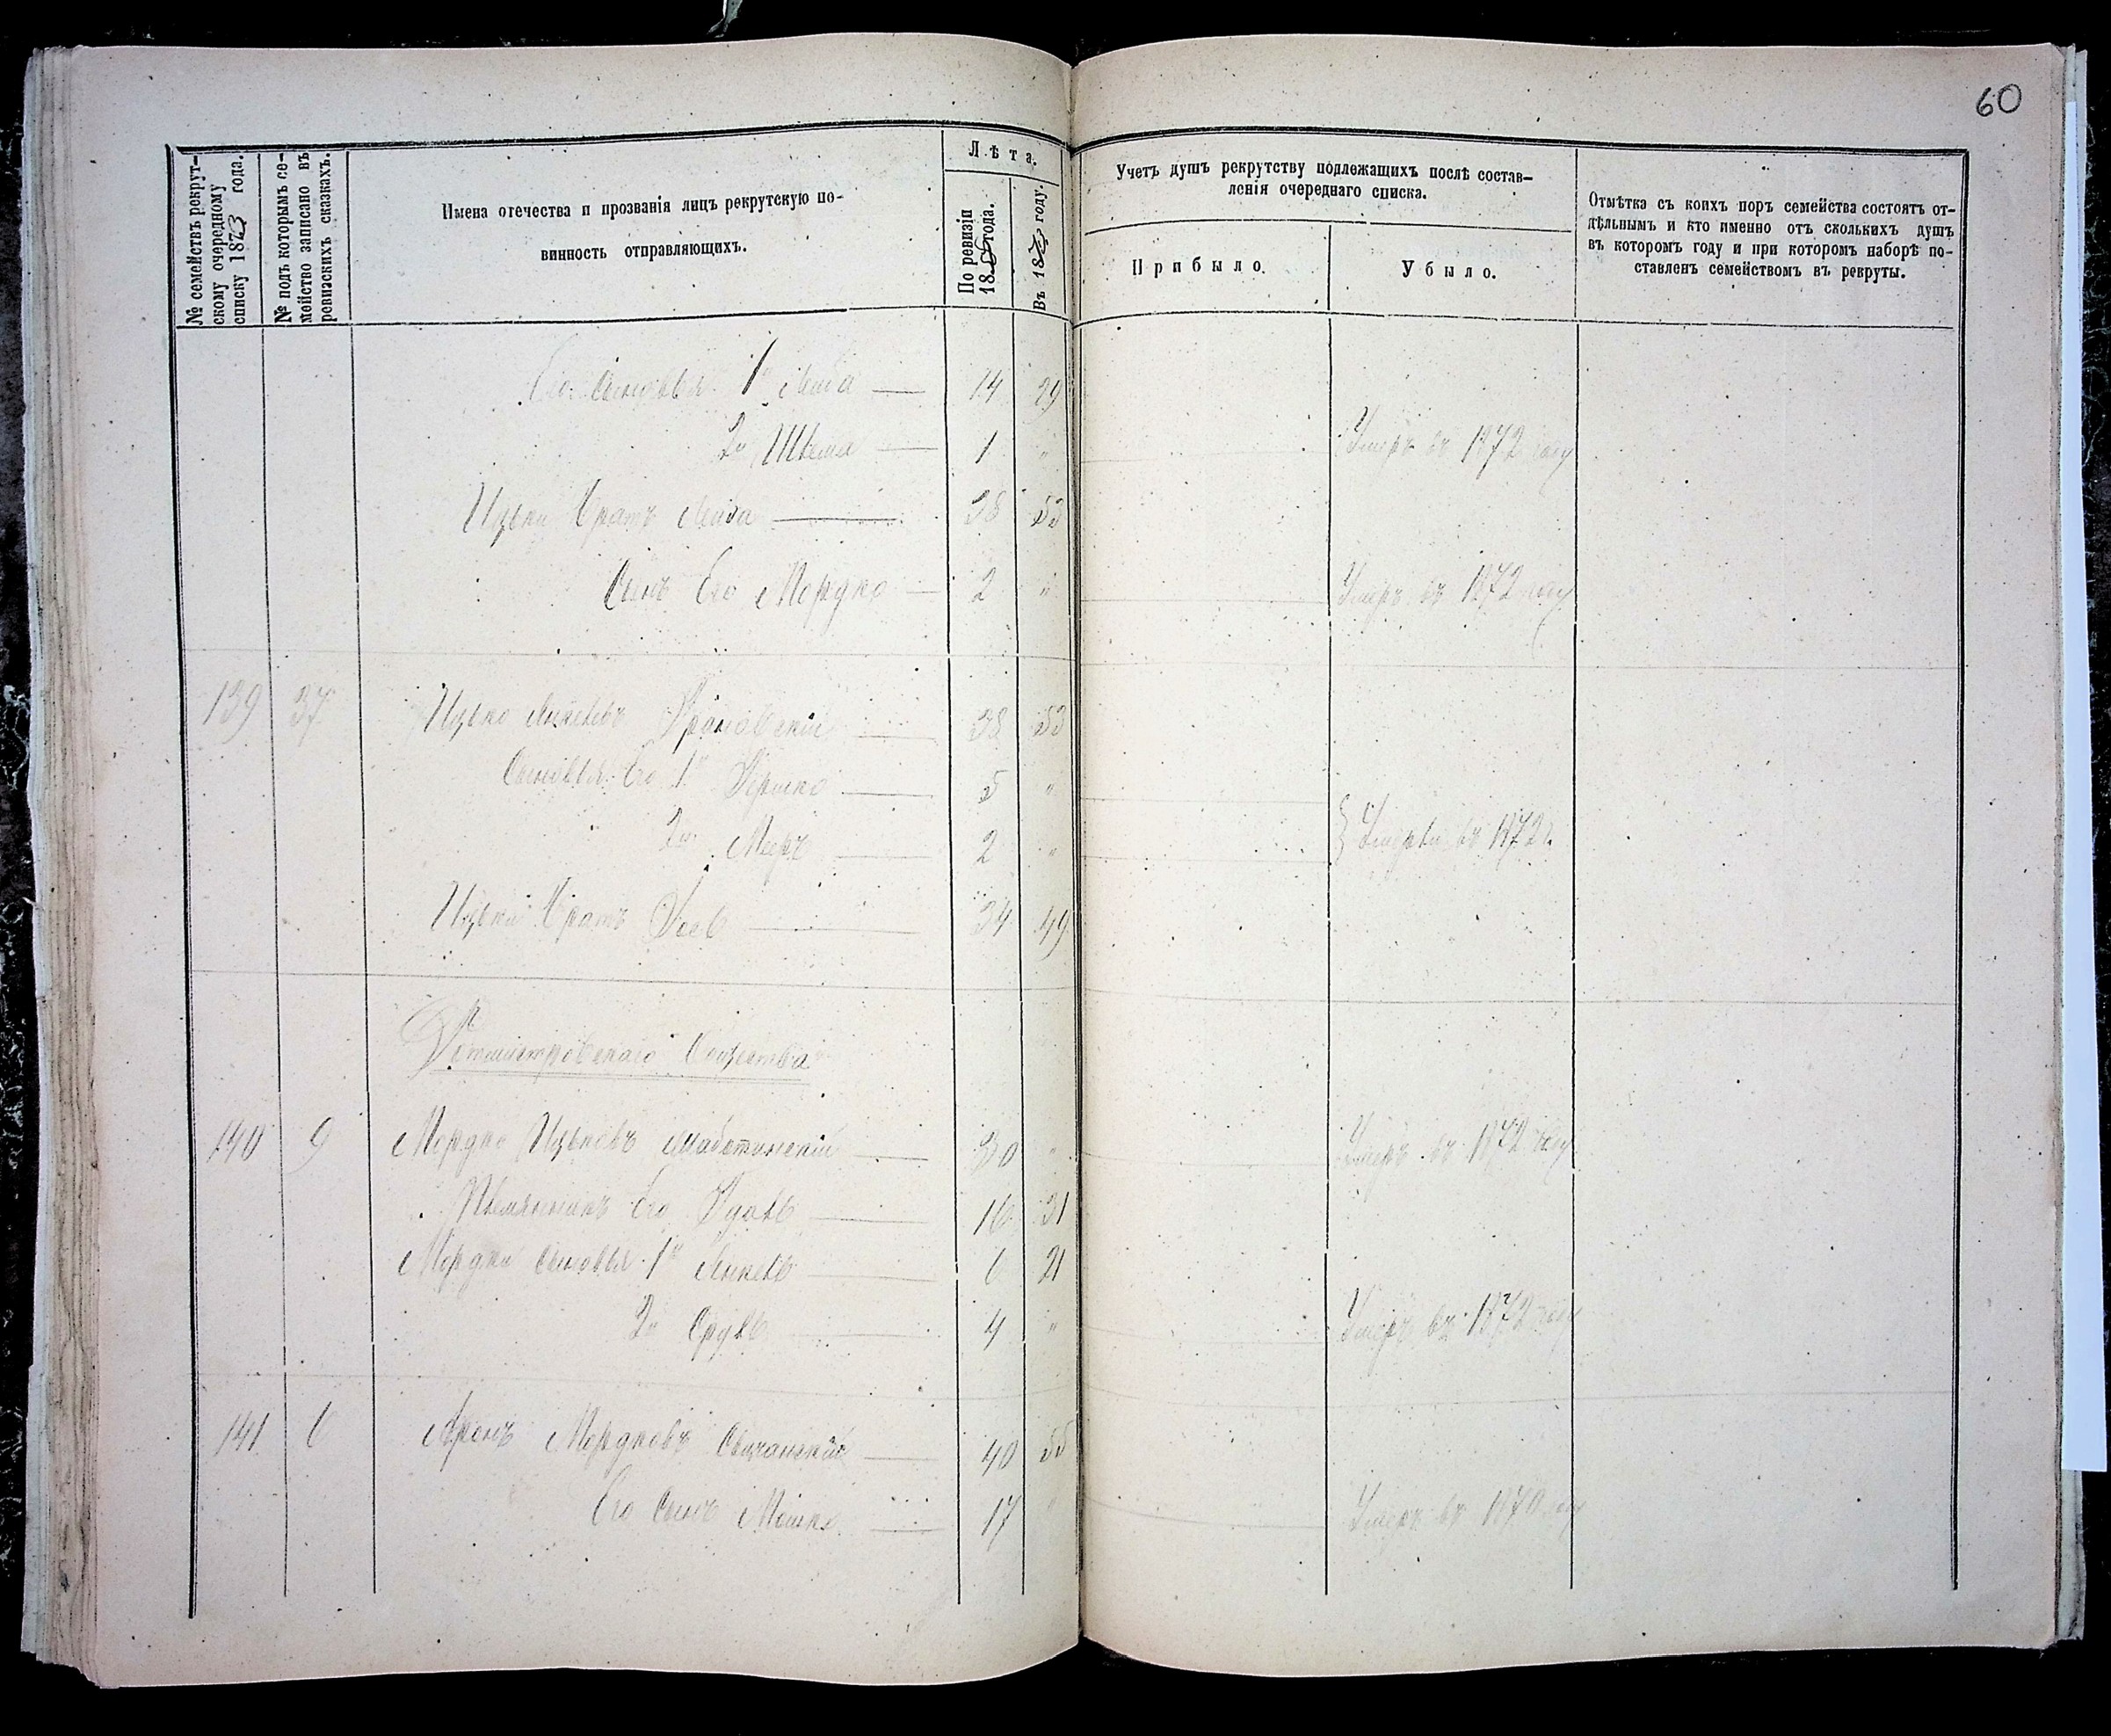 60
№ семействъ рекрут-
скому очередному
списку 1873 года.
№ подъ которымъ се-
мейство записано въ
ревизскихъ сказкахъ.
Имена отечества и прозванія лицъ рекрутскую по-
винность отправляющихъ.
Лѣта.
По ревизіи
18 года.
Въ 1873 году.
Учетъ душъ рекрутству подлежащихъ послѣ состав-
ленія очереднаго списка.
Прибыло.
Убыло.
Отмѣтка съ коихъ поръ семейства состоятъ от-
дѣльнымъ и кто именно отъ сколькихъ душъ
въ которомъ году и при которомъ наборѣ по-
ставленъ семействомъ въ рекруты.
Его Сыновья 1й Лейба 14 29
2й 1 " Умеръ въ 1872 году
Ицьки братъ Лейба 38 53
Сынъ Его Мордко 2 " Умеръ въ 1872 году
139 37 Ицько Янкелевъ 38 53
Сыновья Его 1й Гершко 5 "
2й Мееръ 2 " Умерли въ 1872 г.
Ицьки братъ 34 49
Общества
140 9 Мордко Ицьковъ 30 " Умеръ въ 1872 году
Племянникъ Его 16 31
Мордки Сыновья 1й Янкель 6 21
2й Сруль 4 " Умеръ въ 1872 году
141 6 Аронъ Мордковъ 40 55
Его Сынъ Мошко 17 " Умеръ въ 1870 году